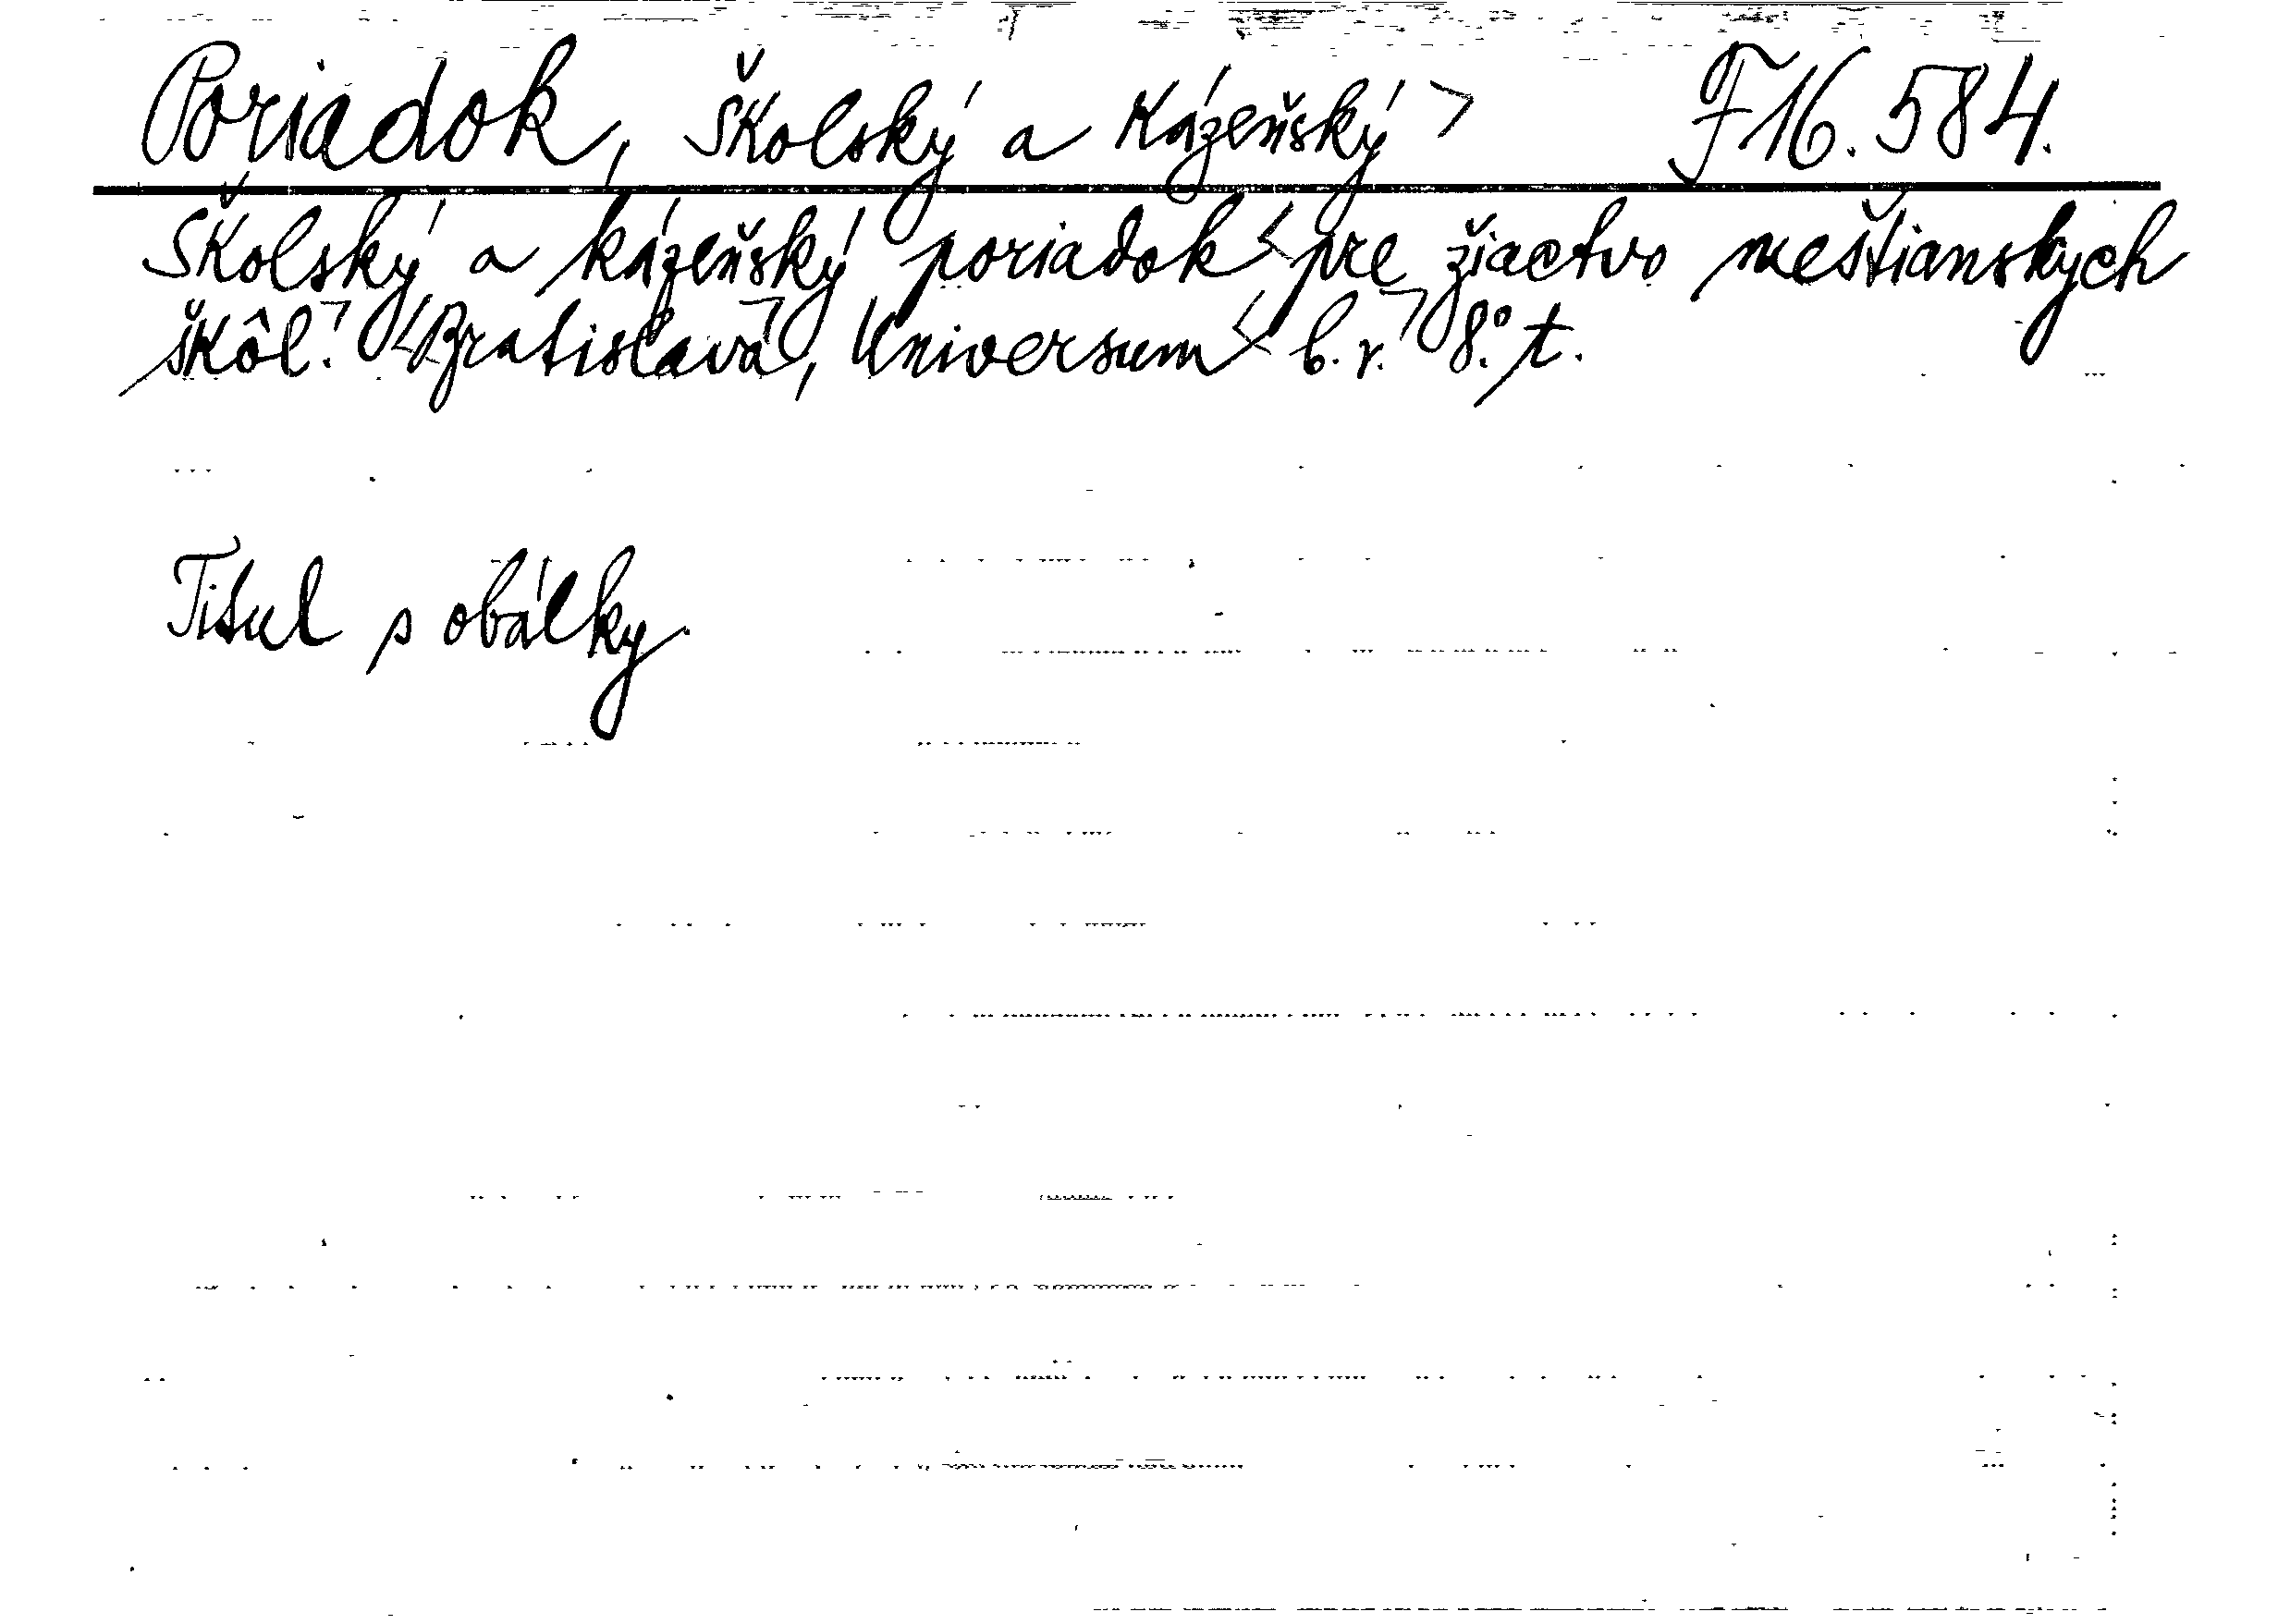 Poriadok, Školský a kázeňský > F 16.584.
Školský a kázeňský poriadok < pre žiactvo meštianskych
škôl.> <Bratislava>, Universum < b. r.> 8.° t.
Titul s obálky.